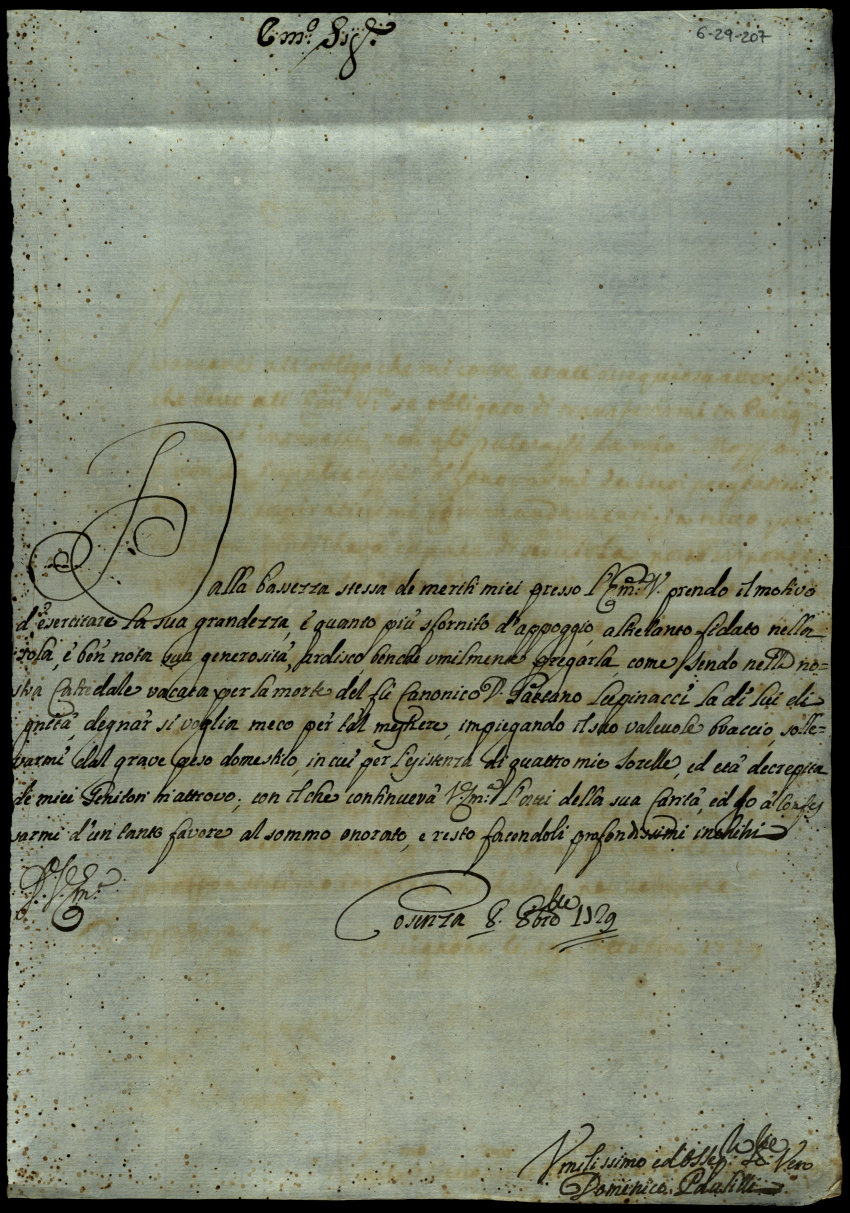 Em.º Sig.re
6-29-207
Dalla bassezza stessa de meriti miei presso l'Em.ª V. prendo il motivo
d'esercitare la sua grandezza, è quanto più sfornito d'appoggio, altretanto fidato nella
sola, è ben nota sua generosità, ardisco benche umilmente pregarla, come sendo nella no-
stra Catedale vacata per la morte del fù Canonico D. Gaetano Lupinacci la di lui di
gnità, degnar si voglia meco per tal mestiere, impiegando il suo valevole braccio, solle=
varmi dal grave peso domestico, in cui per l'esistenza di quattro mie Sorelle, ed età decrepita
de miei Genitori m'attrovo; con il che continuerà V. Em.ª l'atti della sua Carità, ed Io à Confes
sarmi d'un tanto favore al sommo onorato, e resto facendoli profondissimi inchini
D. V. Em.ª
Cosenza 8. 8bre 1729
Umilissimo ed osseq. Vero
Domenico